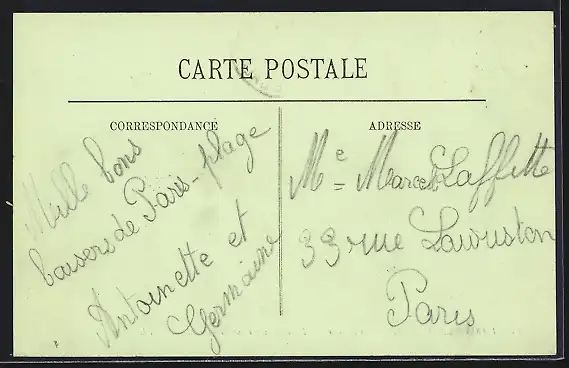 CARTE POSTALE
CORRESPONDANCE
Mille bons
baisers de Paris-plage
Antoinette et
Germaine
ADRESSE
Me = Marcel Laffitte
33 rue Lauriston
Paris